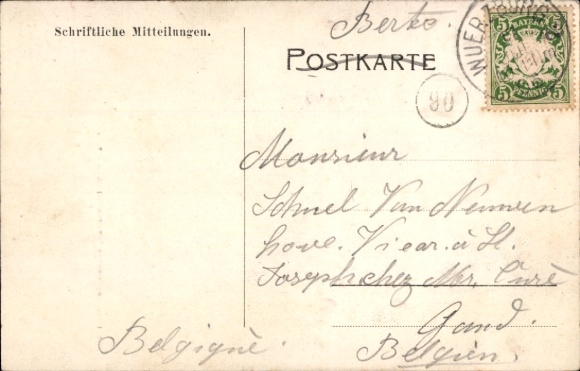 Schriftliche Mitteilungen.
Berto.
POSTKARTE
WUERZBURG
BAYERN
5 5
5 PFENNIG 5
90
Monsieur
Van Neuwen
hove. Vicar. à St.
Joseph chez Mr. Curé
Gand.
Belgiqnè.
Belgien.